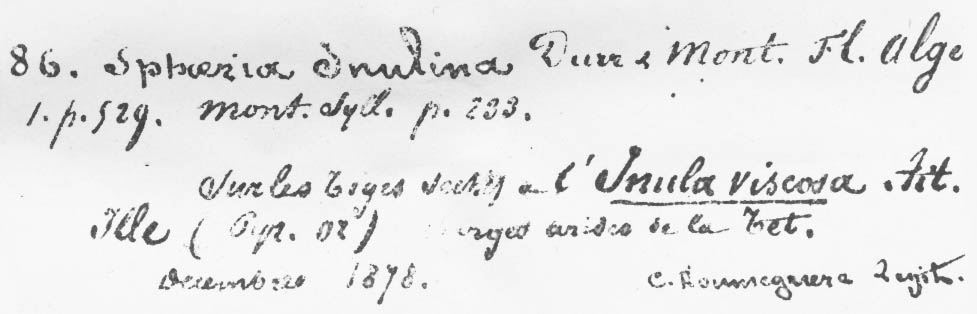 86. Sphæria Inulina Durr & Mont. Fl. Alge
1. p. 529. Mont. Syll. p. 233.
Sur les tiges de l'Inula viscosa Ait.
Ille (Pyr. or) arides de la Tet.
Decembre 1878. C. Roumeguere